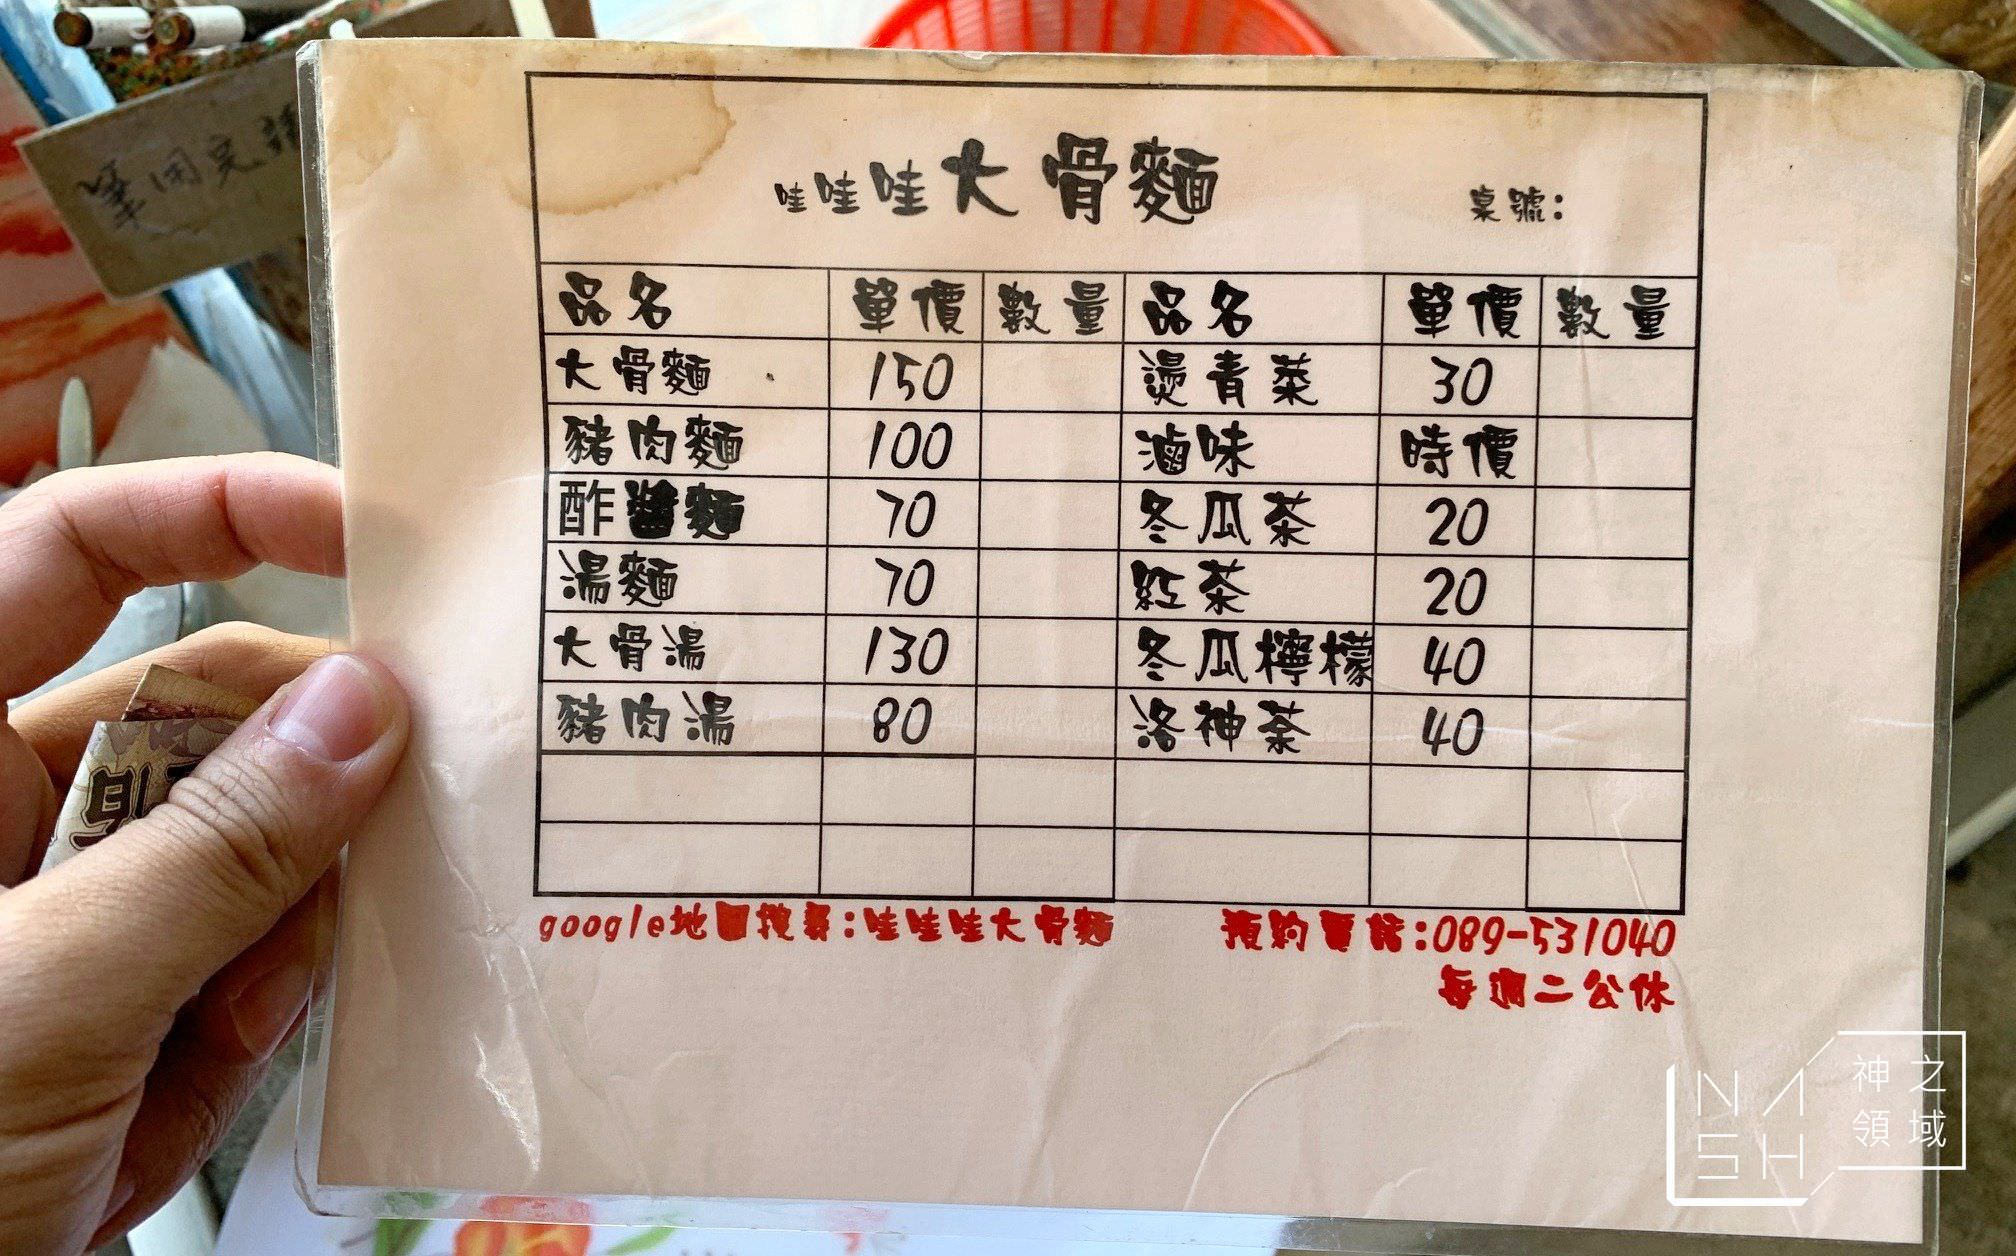 筆用完請
哇哇哇大骨麵 桌號:
品名 單價 數量 品名 單價 數量
大骨麵 150 燙青菜 30
豬肉麵 100 滷味 時價
酢醬麵 70 冬瓜茶 20
湯麵 70 紅茶 20
大骨湯 130 冬瓜檸檬 40
豬肉湯 80 洛神茶 40
google地圖搜尋:哇哇哇大骨麵 預約電話:089-531040
每週二公休
NASH 神之領域